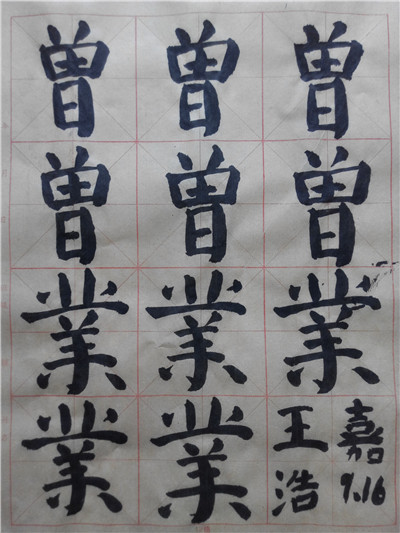 曾曾曾
曾曾曾
業業業
業業
王浩
嘉
9.16